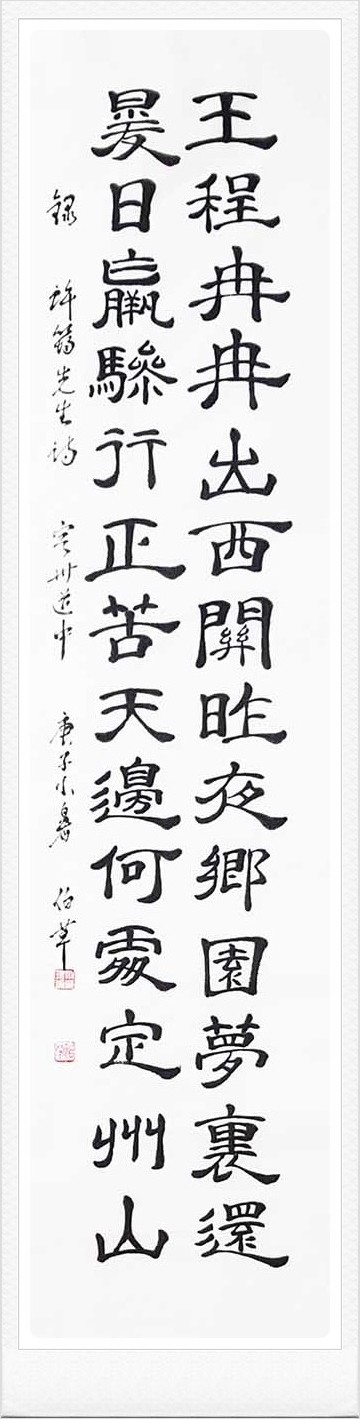 王程冉冉出西關昨夜鄉園夢裏還
日羸驂行正苦天邊何處定州山
錄 許先生詩 定州道中 庚子小暑 伯華